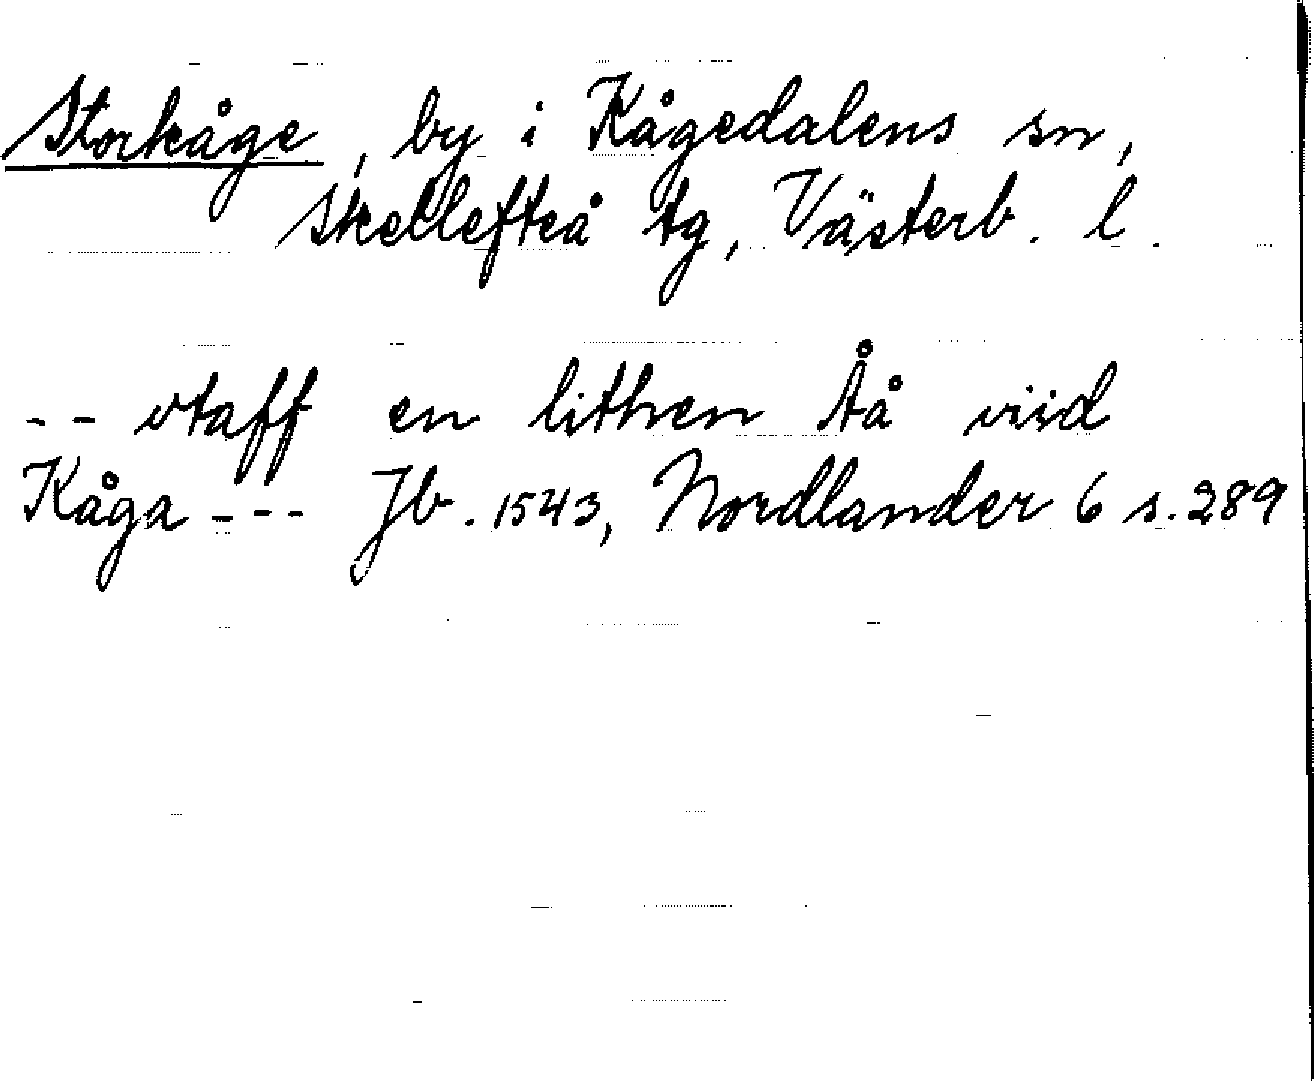 Storkåge, by i Kågedalens sn,
Skellefteå tg, Västerb. l.
-- vtaff en lithen Åå viid
Kåga --- Jb. 1543, Nordlander 6 s. 289